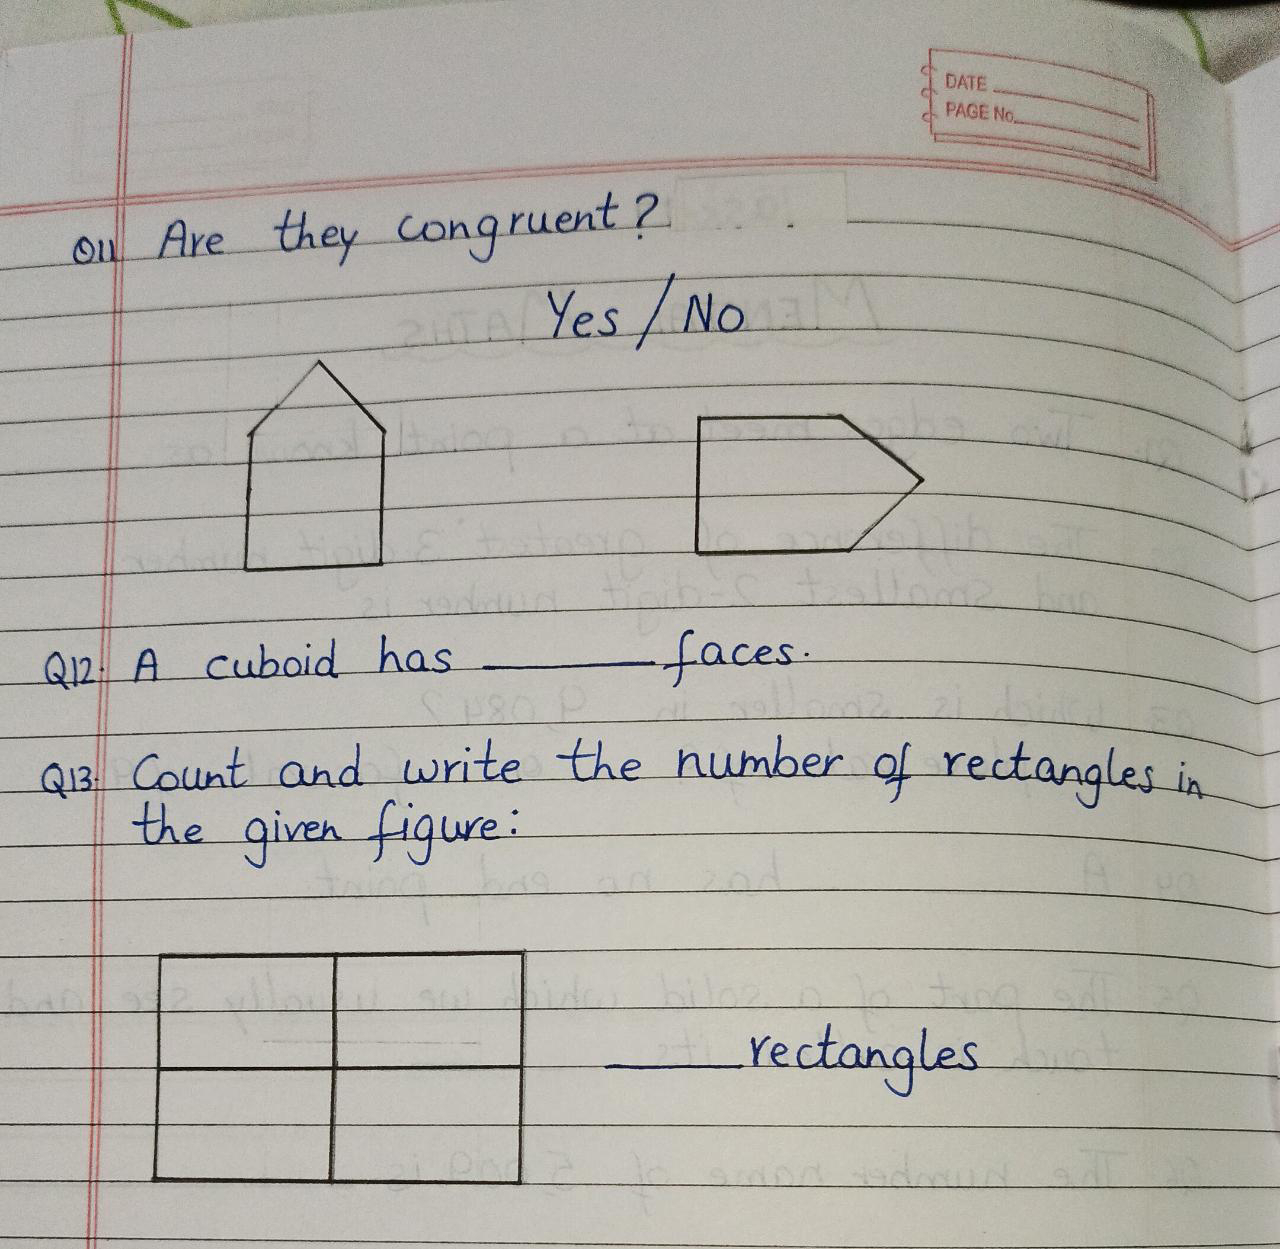 DATE
PAGE No.
Q11 Are they congruent?
Yes / No
Q12. A cuboid has ______ faces.
Q13. Count and write the number of rectangles in
the given figure:
______ rectangles